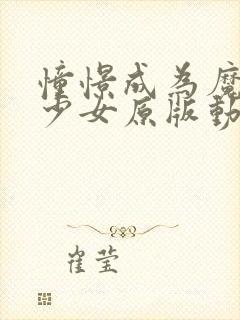 憧憬成为魔
少女原版動
崔莹